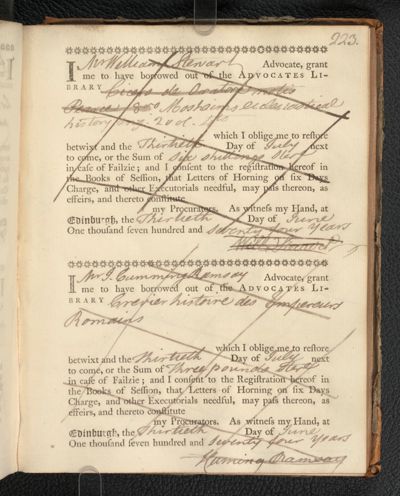 223.
I Mr William Stewart Advocate, grant
me to have borrowed out of the ADVOCATES LI-
BRARY Cicero de Oratore
8vo Mosheims eclesiastical
history eng. 2d.
which I oblige me to reſtore
betwixt and the Thirtieth Day of July next
to come, or the Sum of Six shillings Ster
in caſe of Failzie; and I conſent to the regiſtration hereof in
the Books of Seſſion, that Letters of Horning on ſix Days
Charge, and other Executorials needful, may paſs thereon, as
effeirs, and thereto conſtitute
my Procurators. As witneſs my Hand, at
Edinburgh, the Thirtieth Day of June
One thouſand ſeven hundred and Seventy four Years
Will: Stewart
I Mr J. Cumming Ramsay Advocate, grant
me to have borrowed out of the ADVOCATES LI-
BRARY Crevier histoire des Empereurs
Romains
which I oblige me to reſtore
betwixt and the Thirtieth Day of July next
to come, or the Sum of Three pounds Sterg
in caſe of Failzie; and I conſent to the Regiſtration hereof in
the Books of Seſſion, that Letters of Horning on ſix Days
Charge, and other Executorials needful, may paſs thereon, as
effeirs, and thereto conſtitute
my Procurators. As witneſs my Hand, at
Edinburgh, the Thirtieth Day of June
One thouſand ſeven hundred and Seventy four years